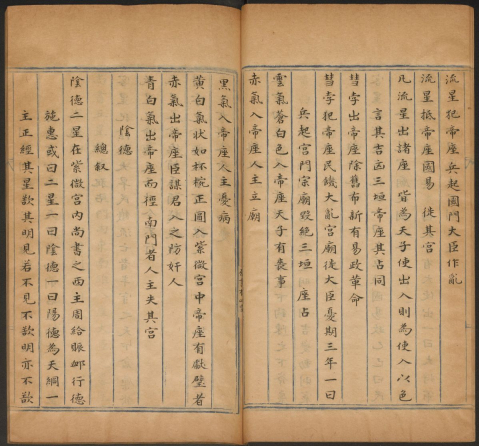 流星犯帝座兵起國門大臣作亂
流星抵帝座國易 徙其宮
凡流星出諸座 皆為天子使出入則為使入以色
言其吉凶三垣帝座其占同
彗孛出帝座除舊布新有易政革命
彗孛犯帝座民饑大亂宮廟徙大臣憂期三年一曰
兵起宮門宗廟毀絕三垣 座占
雲氣蒼白色入帝座天子有喪事
赤氣入帝座人主立廟
黑氣入帝座人主憂病
黃白氣狀如杯椀正圓入紫微宮中帝座有獻璧者
赤氣出帝座臣謀君入之防奸人
青白氣出帝座而徑 南門者人主失其宮
陰德
總叙
陰德二星在紫微宮內尚書之西主周給賑卹行德
施惠或曰二星一曰陰德一曰陽德為天綱一
主正經其星欲其明見若不見不欲明亦不欲